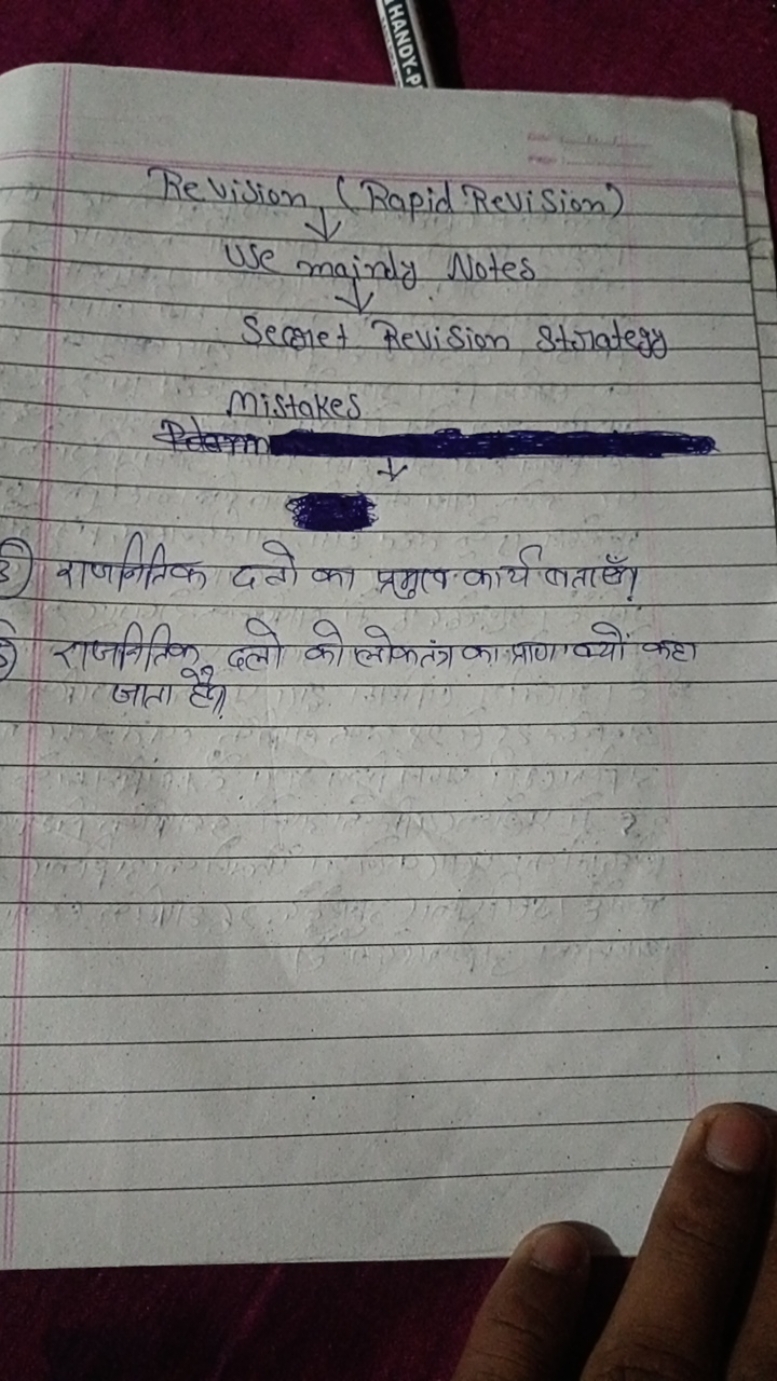 HANDY-P
Revision (Rapid Revision)
↓
Use mainly Notes
↓
Secret Revision Strategy
Mistakes
↓
राजनितिक दलो का प्रमुख कार्य बताएँ।
राजनितिक दलो को लोकतंत्र का प्राण क्यों कहा
जाता है?